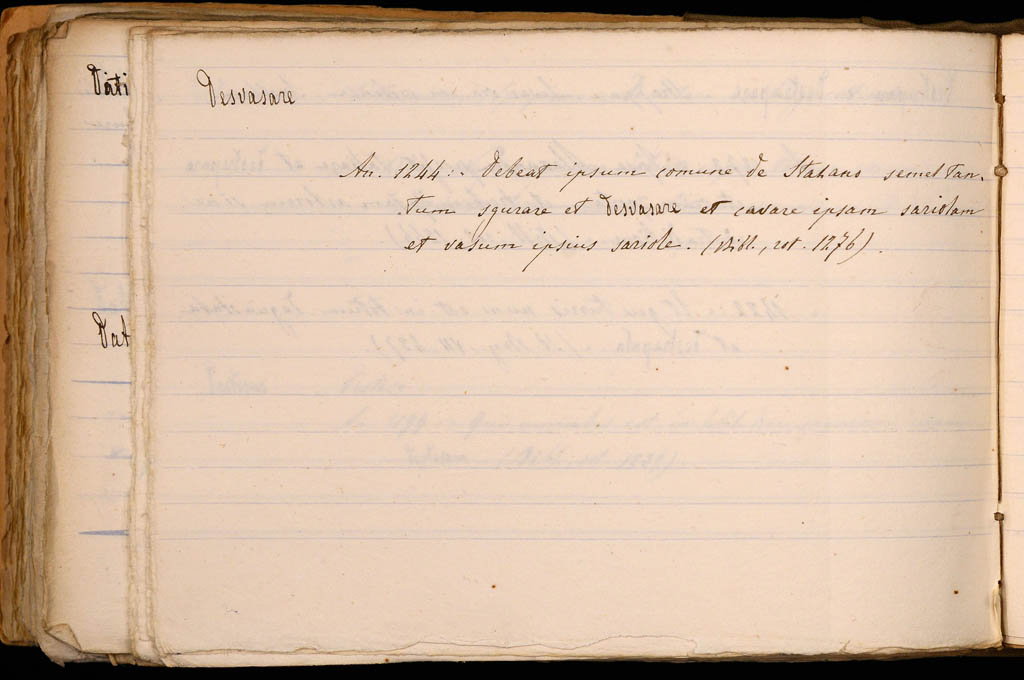 Dati
Desvasare
An. 1244:. Debeat ipsum comune de Stahano semel tan-
tum sgurare et desvasare et cavare ipsam sariolam
et vasum ipsius sariole. (Bibl., rot. 1276).
Dat